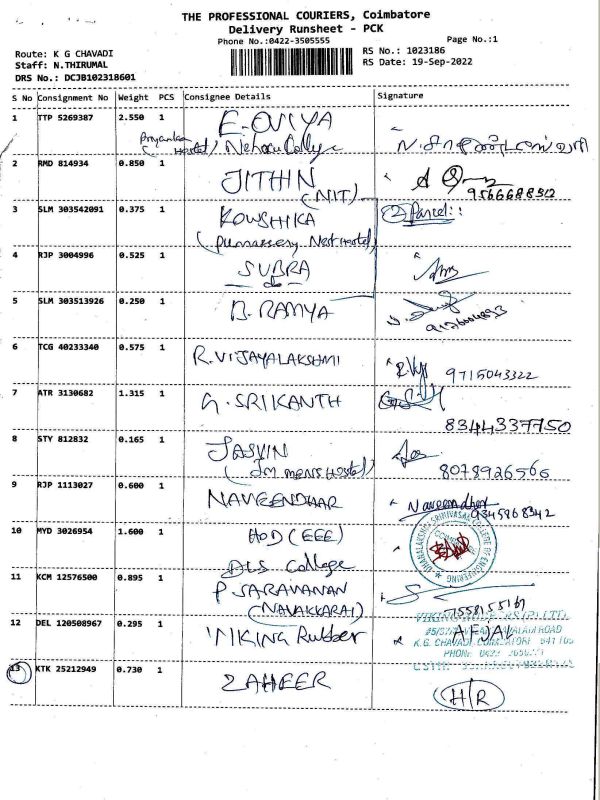 THE PROFESSIONAL COURIERS, Coimbatore
Delivery Runsheet - PCK
Phone No.:0422-3505555
Page No.:1
Route: K G CHAVADI
Staff: N.THIRUMAL
DRS No.: DCJB102318601
RS No.: 1023186
RS Date: 19-Sep-2022
S No Consignment No Weight PCS Consignee Details Signature
1 TTP 5269387 2.550 1 E-OVIYA
Priyanka Hostel) Nehru College
2 RMD 814934 0.850 1 JITHIN
(NIT) 956668850
3 SLM 303542091 0.375 1 KOWSHIKA (2) Parcel::
4 RJP 3004996 0.525 1 SUBRA
-do-
5 SLM 303513926 0.250 1 B. RAMYA
6 TCG 40233340 0.575 1 R.VIJAYALAKSHMI 9715043322
7 ATR 3130682 1.315 1 G. SRIKANTH
8344337750
8 STY 812832 0.165 1 JASVIN
(Jm mens Hostel) 8078926566
9 RJP 1113027 0.600 1 NAVEENDHAR Naveendhar
9345868342
10 MYD 3026954 1.600 1 HOD (EEE)
DLS College
11 KCM 12576500 0.895 1 P SARAVANAN
(NAVAKKARAI)
12 DEL 120508967 0.295 1 VIKING Rubber AFJAL
13 KTK 25212949 0.730 1 ZAHEER
H/R